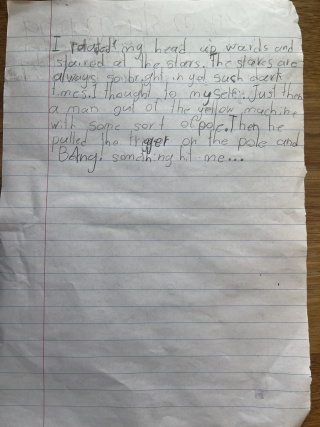 I rotated my head up wards and
staired at the stars. The stares are
always so bright in yet such dark
times. I thought to my self. Just then
a man out of the yellow machine
with some sort of pole. Then he
pulled the trigger on the pole and
BAng. something hit me...